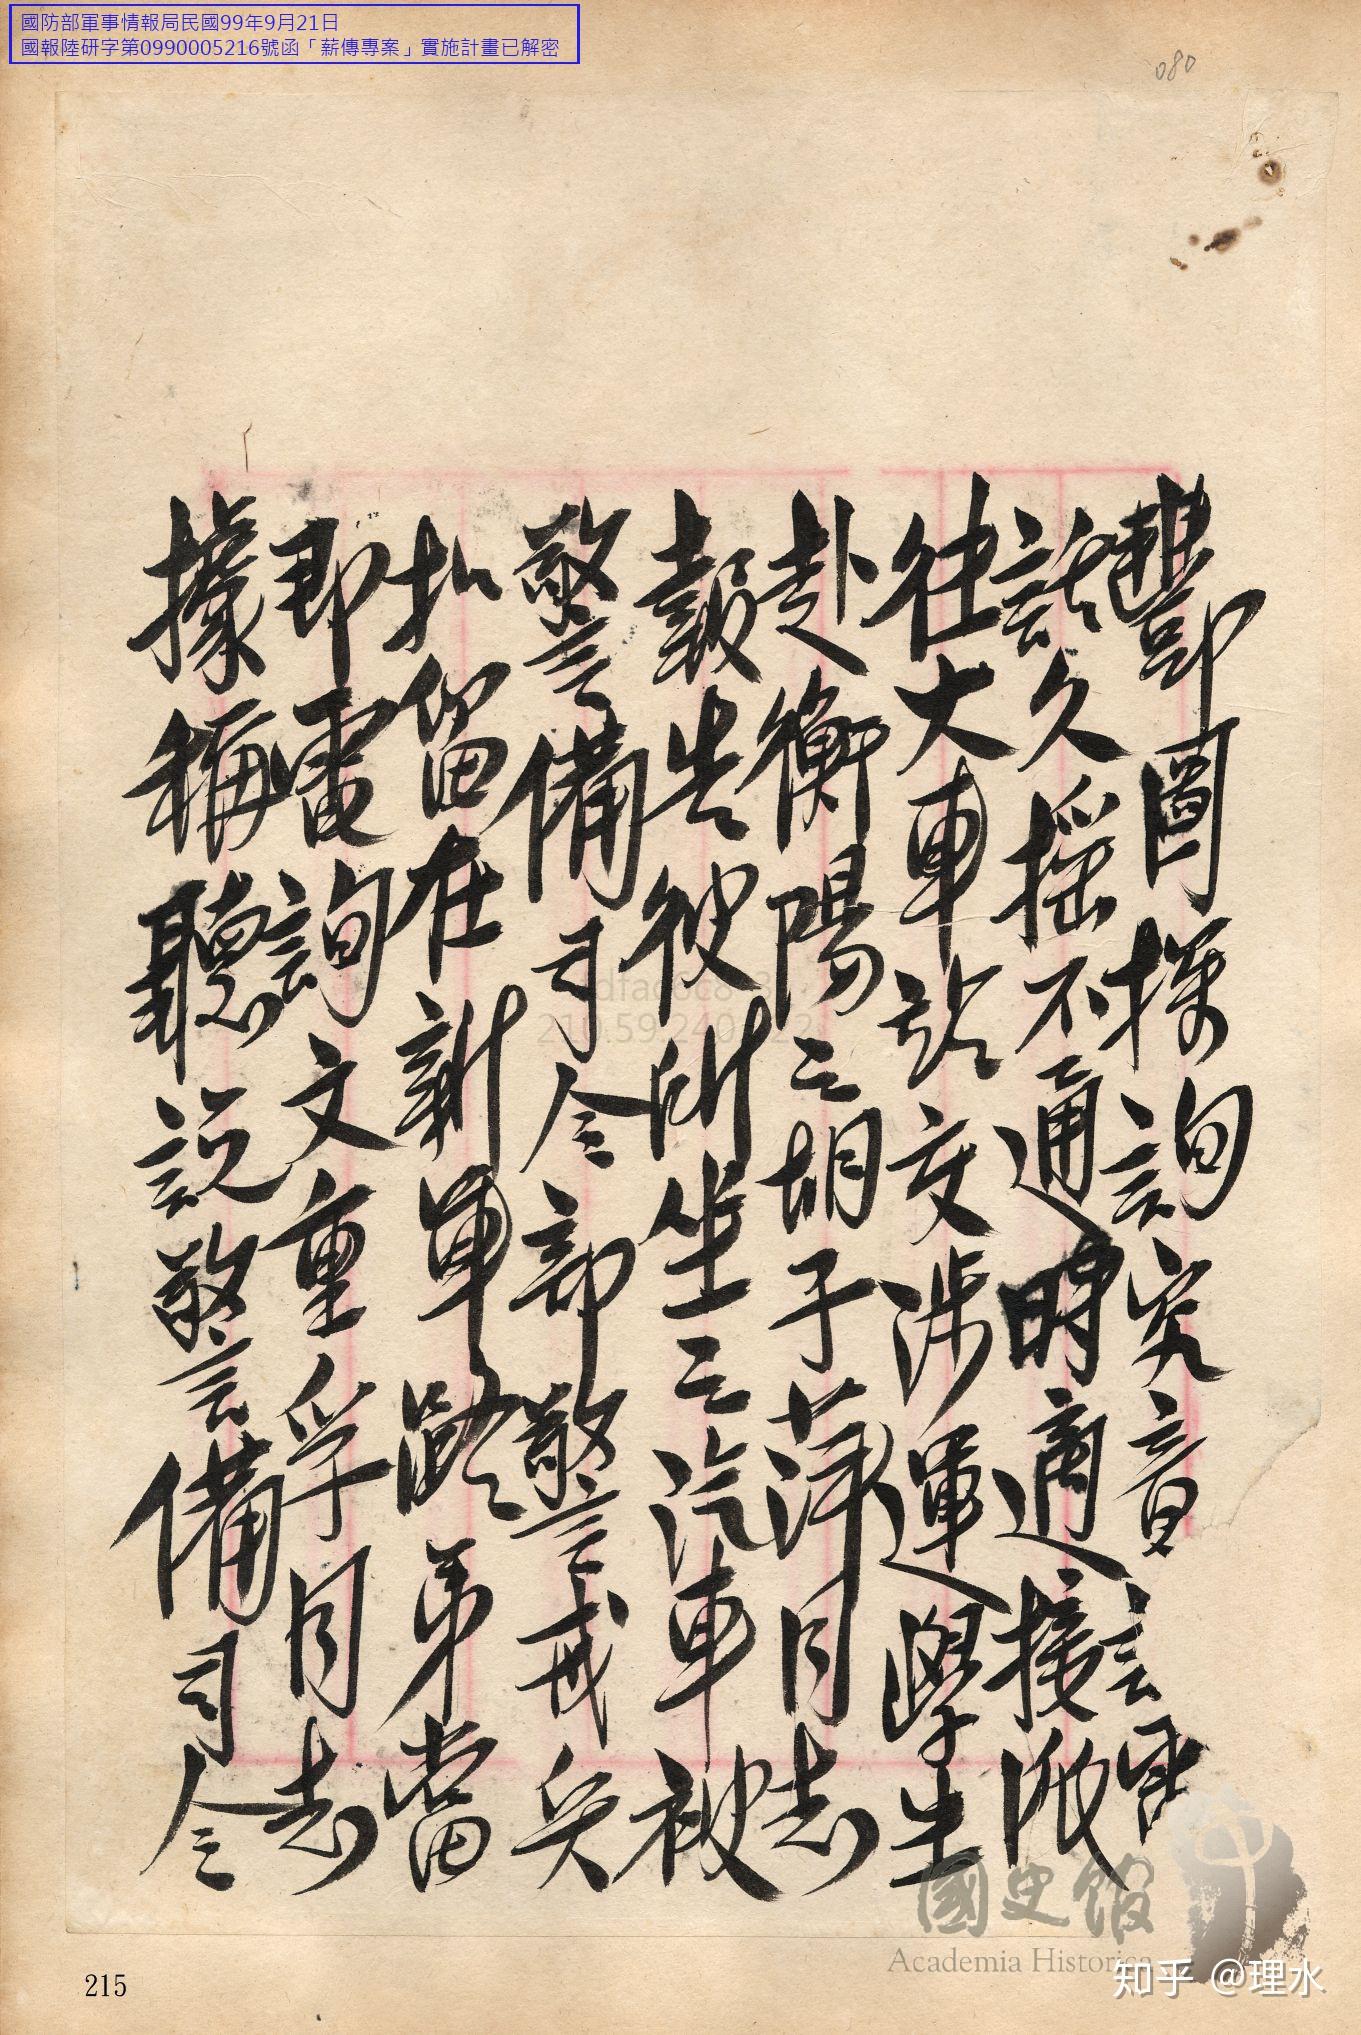 國防部軍事情報局民國99年9月21日
國報陸研字第0990005216號函「薪傳專案」實施計畫已解密
080
即圖探詢究竟
話久搖不通時適接派
往大車站交涉運學生
赴衡陽之胡子萍同志
報告彼所坐之汽車被
警備司令部警戒兵
扣留在新軍路弟當
即電詢文重孚同志
據稱聽說警備司令
215
國史館
Academia Historica
知乎 @理水